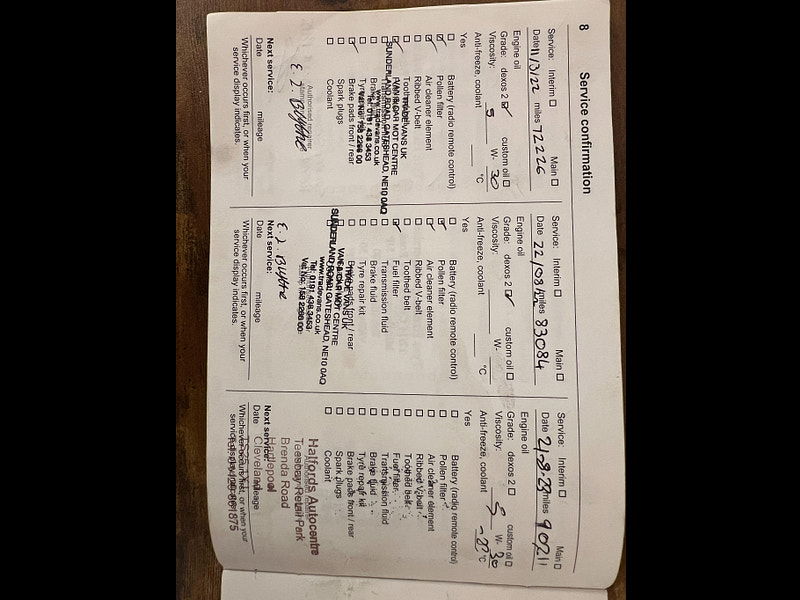 8
Service confirmation
Service: Interim Main
Date 11/3/22 miles 72226
Engine oil
Grade: dexos 2 custom oil
Viscosity: 5 W- 30
Anti-freeze, coolant °C
Yes
Battery (radio remote control)
Pollen filter
Air cleaner element
Ribbed V-belt
Toothed belt
Fuel filter
Transmission fluid
Brake fluid
Tyre repair kit
Brake pads front / rear
Spark plugs
Coolant
TRADE VANS UK
VAN & CAR MOT CENTRE
SUNDERLAND ROAD, GATESHEAD, NE10 0AQ
Tel: 0191 438 3453
www.tradevans.co.uk
E. J. Blythe
Next service:
Date mileage
Whichever occurs first, or when your
service display indicates.
Service: Interim Main
Date 22/08/ miles 83084
Engine oil
Grade: dexos 2 custom oil
Viscosity: W-
Anti-freeze, coolant °C
Yes
Battery (radio remote control)
Pollen filter
Air cleaner element
Ribbed V-belt
Toothed belt
Fuel filter
Transmission fluid
Brake fluid
Tyre repair kit
Brake pads front / rear
TRADE VANS UK
VAN & CAR MOT CENTRE
SUNDERLAND ROAD, GATESHEAD, NE10 0AQ
Tel: 0191 438 3453
www.tradevans.co.uk
E. J. Blythe
Next service:
Date mileage
Whichever occurs first, or when your
service display indicates.
Service: Interim Main
Date miles 90211
Engine oil
Grade: dexos 2 custom oil
Viscosity: 5 W- 30
Anti-freeze, coolant °C
Yes
Battery (radio remote control)
Pollen filter
Air cleaner element
Ribbed V-belt
Toothed belt
Fuel filter
Transmission fluid
Brake fluid
Tyre repair kit
Brake pads front / rear
Spark plugs
Coolant
Halfords Autocentre
Teesbay Retail Park
Brenda Road
Hartlepool
Cleveland
Next service:
Date mileage
Whichever occurs first, or when your
service display indicates.